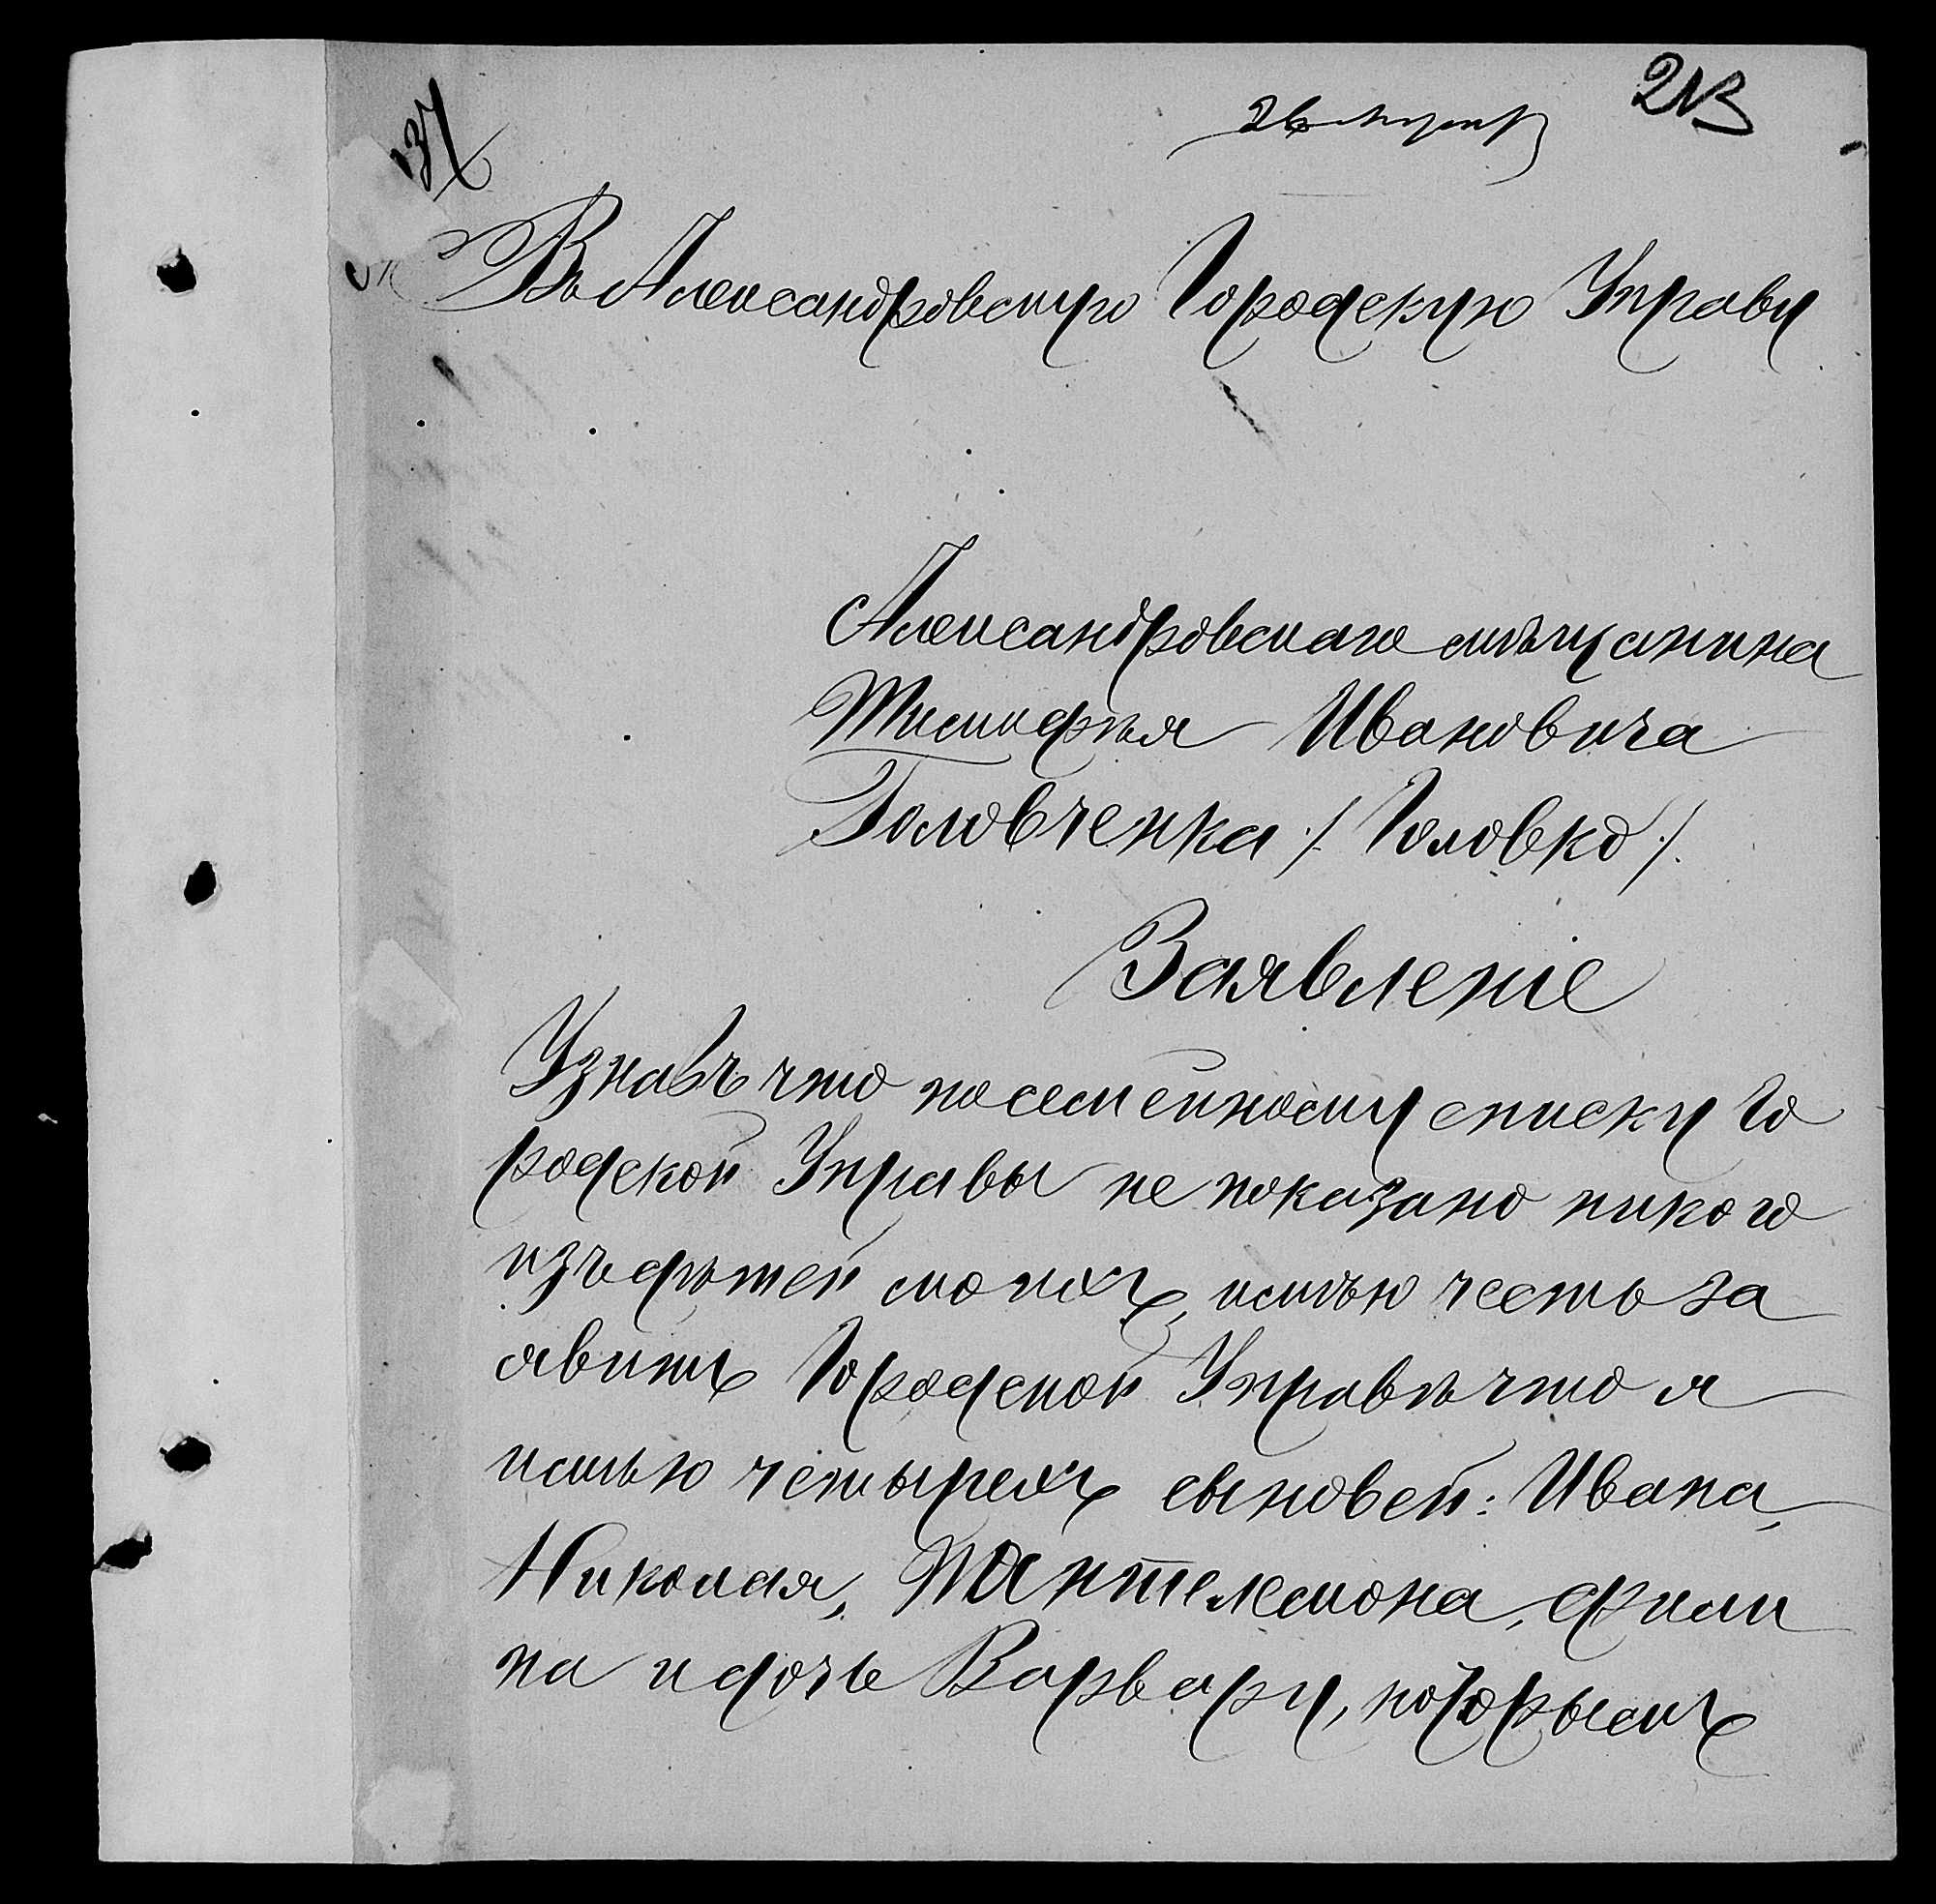 213
137
Въ Александровскую Городскую Управу
Александровскаго мѣщанина
Тимофѣя Ивановича
Головченка /. Головко /.
Заявленіе
Узнавъ что по семейному списку Го
родской Управы не показано никого
изъ дѣтей моихъ, имѣю честь за
явить Городской Управѣ что я
имѣю четырехъ сыновей: Ивана,
Николая, Пантелемона, Фили
па и дочь Варвару, которымъ